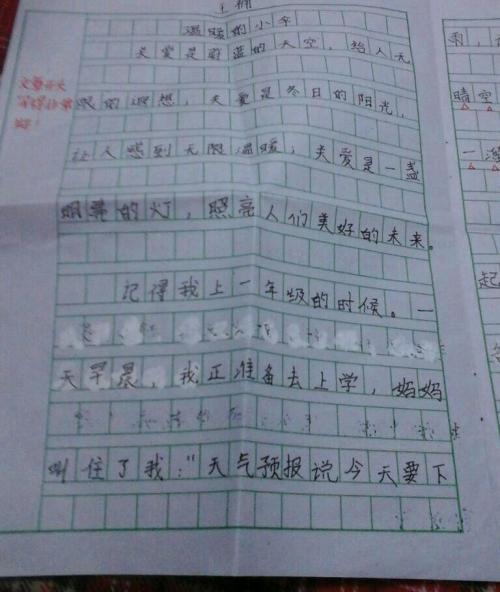 温暖的小伞
关爱是蔚蓝的天空，给人无
限的遐想，关爱是冬日的阳光，
让人感到无限温暖，关爱是一盏
明亮的灯，照亮人们美好的未来。
记得我上一年级的时候。一
天早晨，我正准备去上学，妈妈
叫住了我："天气预报说今天要下
文章开头
好！
晴空
一
起